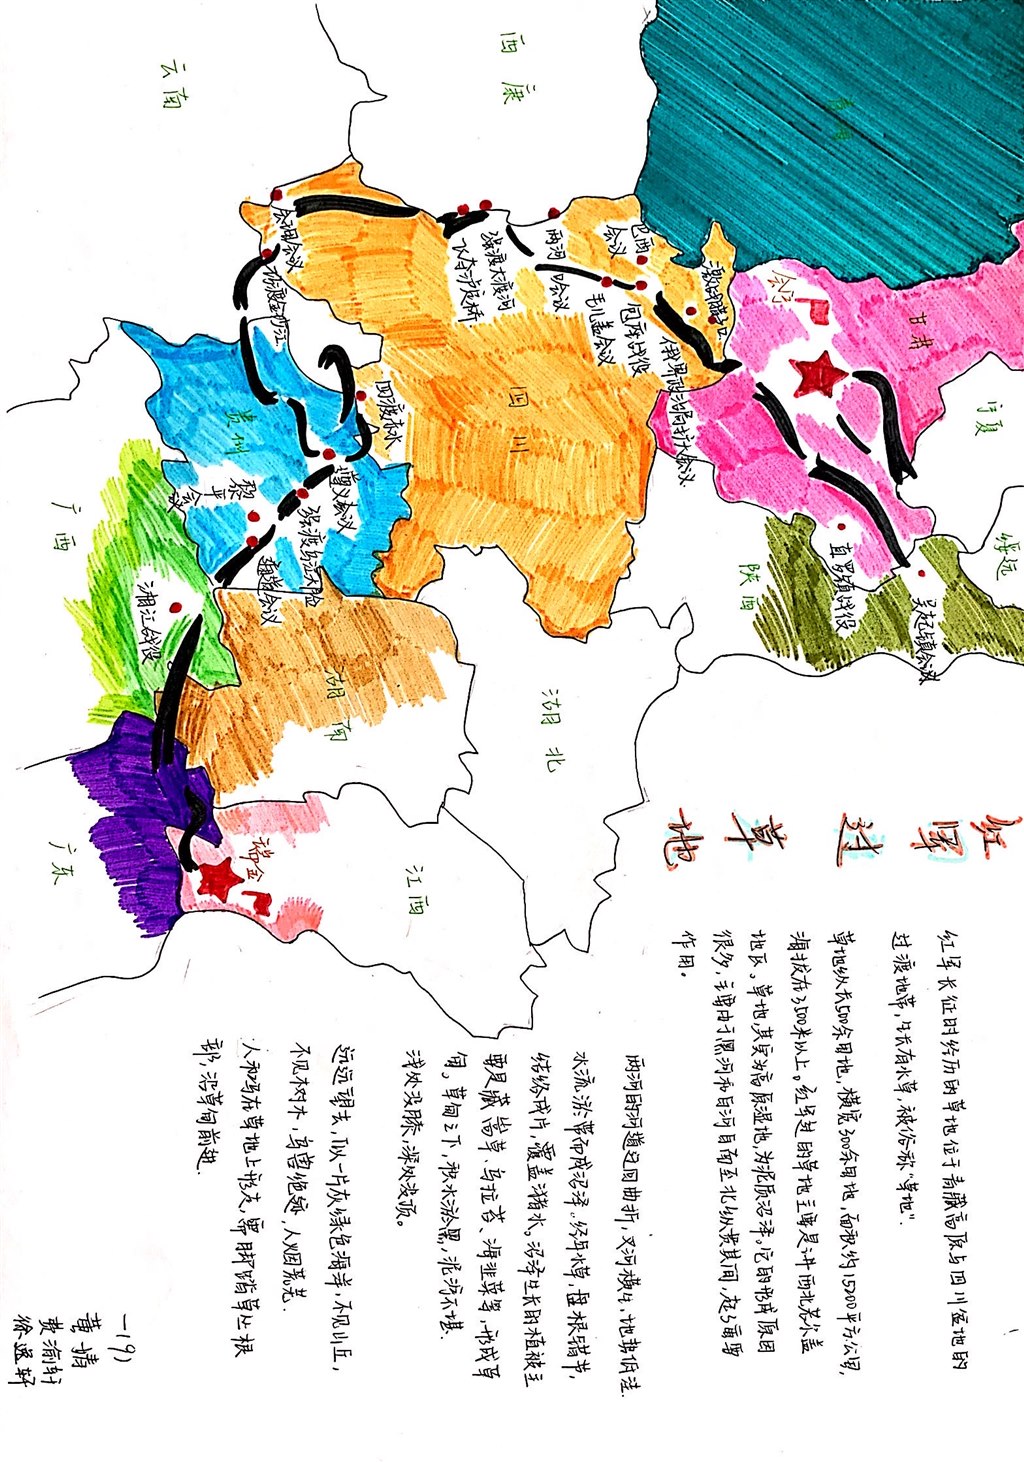 红军过草地
红军长征时经历的草地位于青藏高原与四川盆地的
过渡地带,生长有水草,被俗称"草地".
草地纵长500余里地,横宽300余里地,面积约15200平方公里,
海拔在3500米以上。红军过的草地主要是讲西北若尔盖
地区。草地其实为高原湿地,为泥质沼泽。它的形成原因
很多,主要由于黑河和白河自南至北纵贯其间,起了重要
作用。
两河的河道迂回曲折,叉河横生,地势低洼.
水流淤滞而成沼泽。经年水草,盘根错节,
结络成片,覆盖潴水。沼泽生长的植被主
要是藏嵩草、乌拉苔、海韭菜等,形成草
甸。草甸之下,积水淤黑,泥泞不堪.
浅处没膝,深处没顶。
远远望去,似一片灰绿色海洋,不见山丘,
不见树木,鸟兽绝迹,人烟荒芜.
人和马在草地上行走,需脚踏草丛根
部,沿草甸前进.
一(9)
黄婧
黄渝轩
徐逸轩
西康
云南
甘肃
宁夏
绥远
陕西
四川
贵州
广西
湖南
湖北
江西
广东
会宁
激战腊子口
巴西会议
两河口会议
毛儿盖会议
包座战役
俄界政治局扩大会议
强渡大渡河
飞夺泸定桥
会理会议
巧渡金沙江
四渡赤水
遵义会议
强渡乌江天险
黎平会议
猴场会议
湘江战役
直罗镇战役
吴起镇会议
瑞金